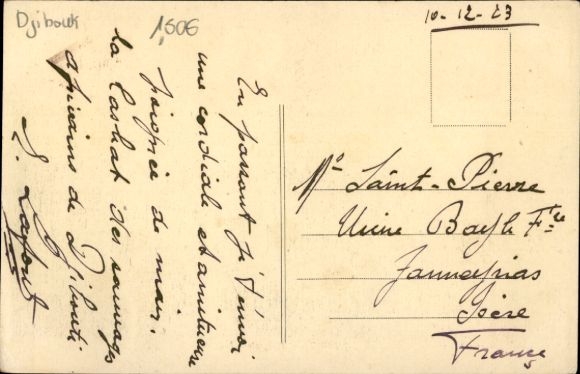 Djibouti
1,50€
10-12-23
En passant je t'envoi
une cordiale et amicale
poignée de main.
la Casbat des sauvages
africains de Djibouti
Mr Saint-Pierre
Usine Bayle Fre
Janneyrias
Isère
France